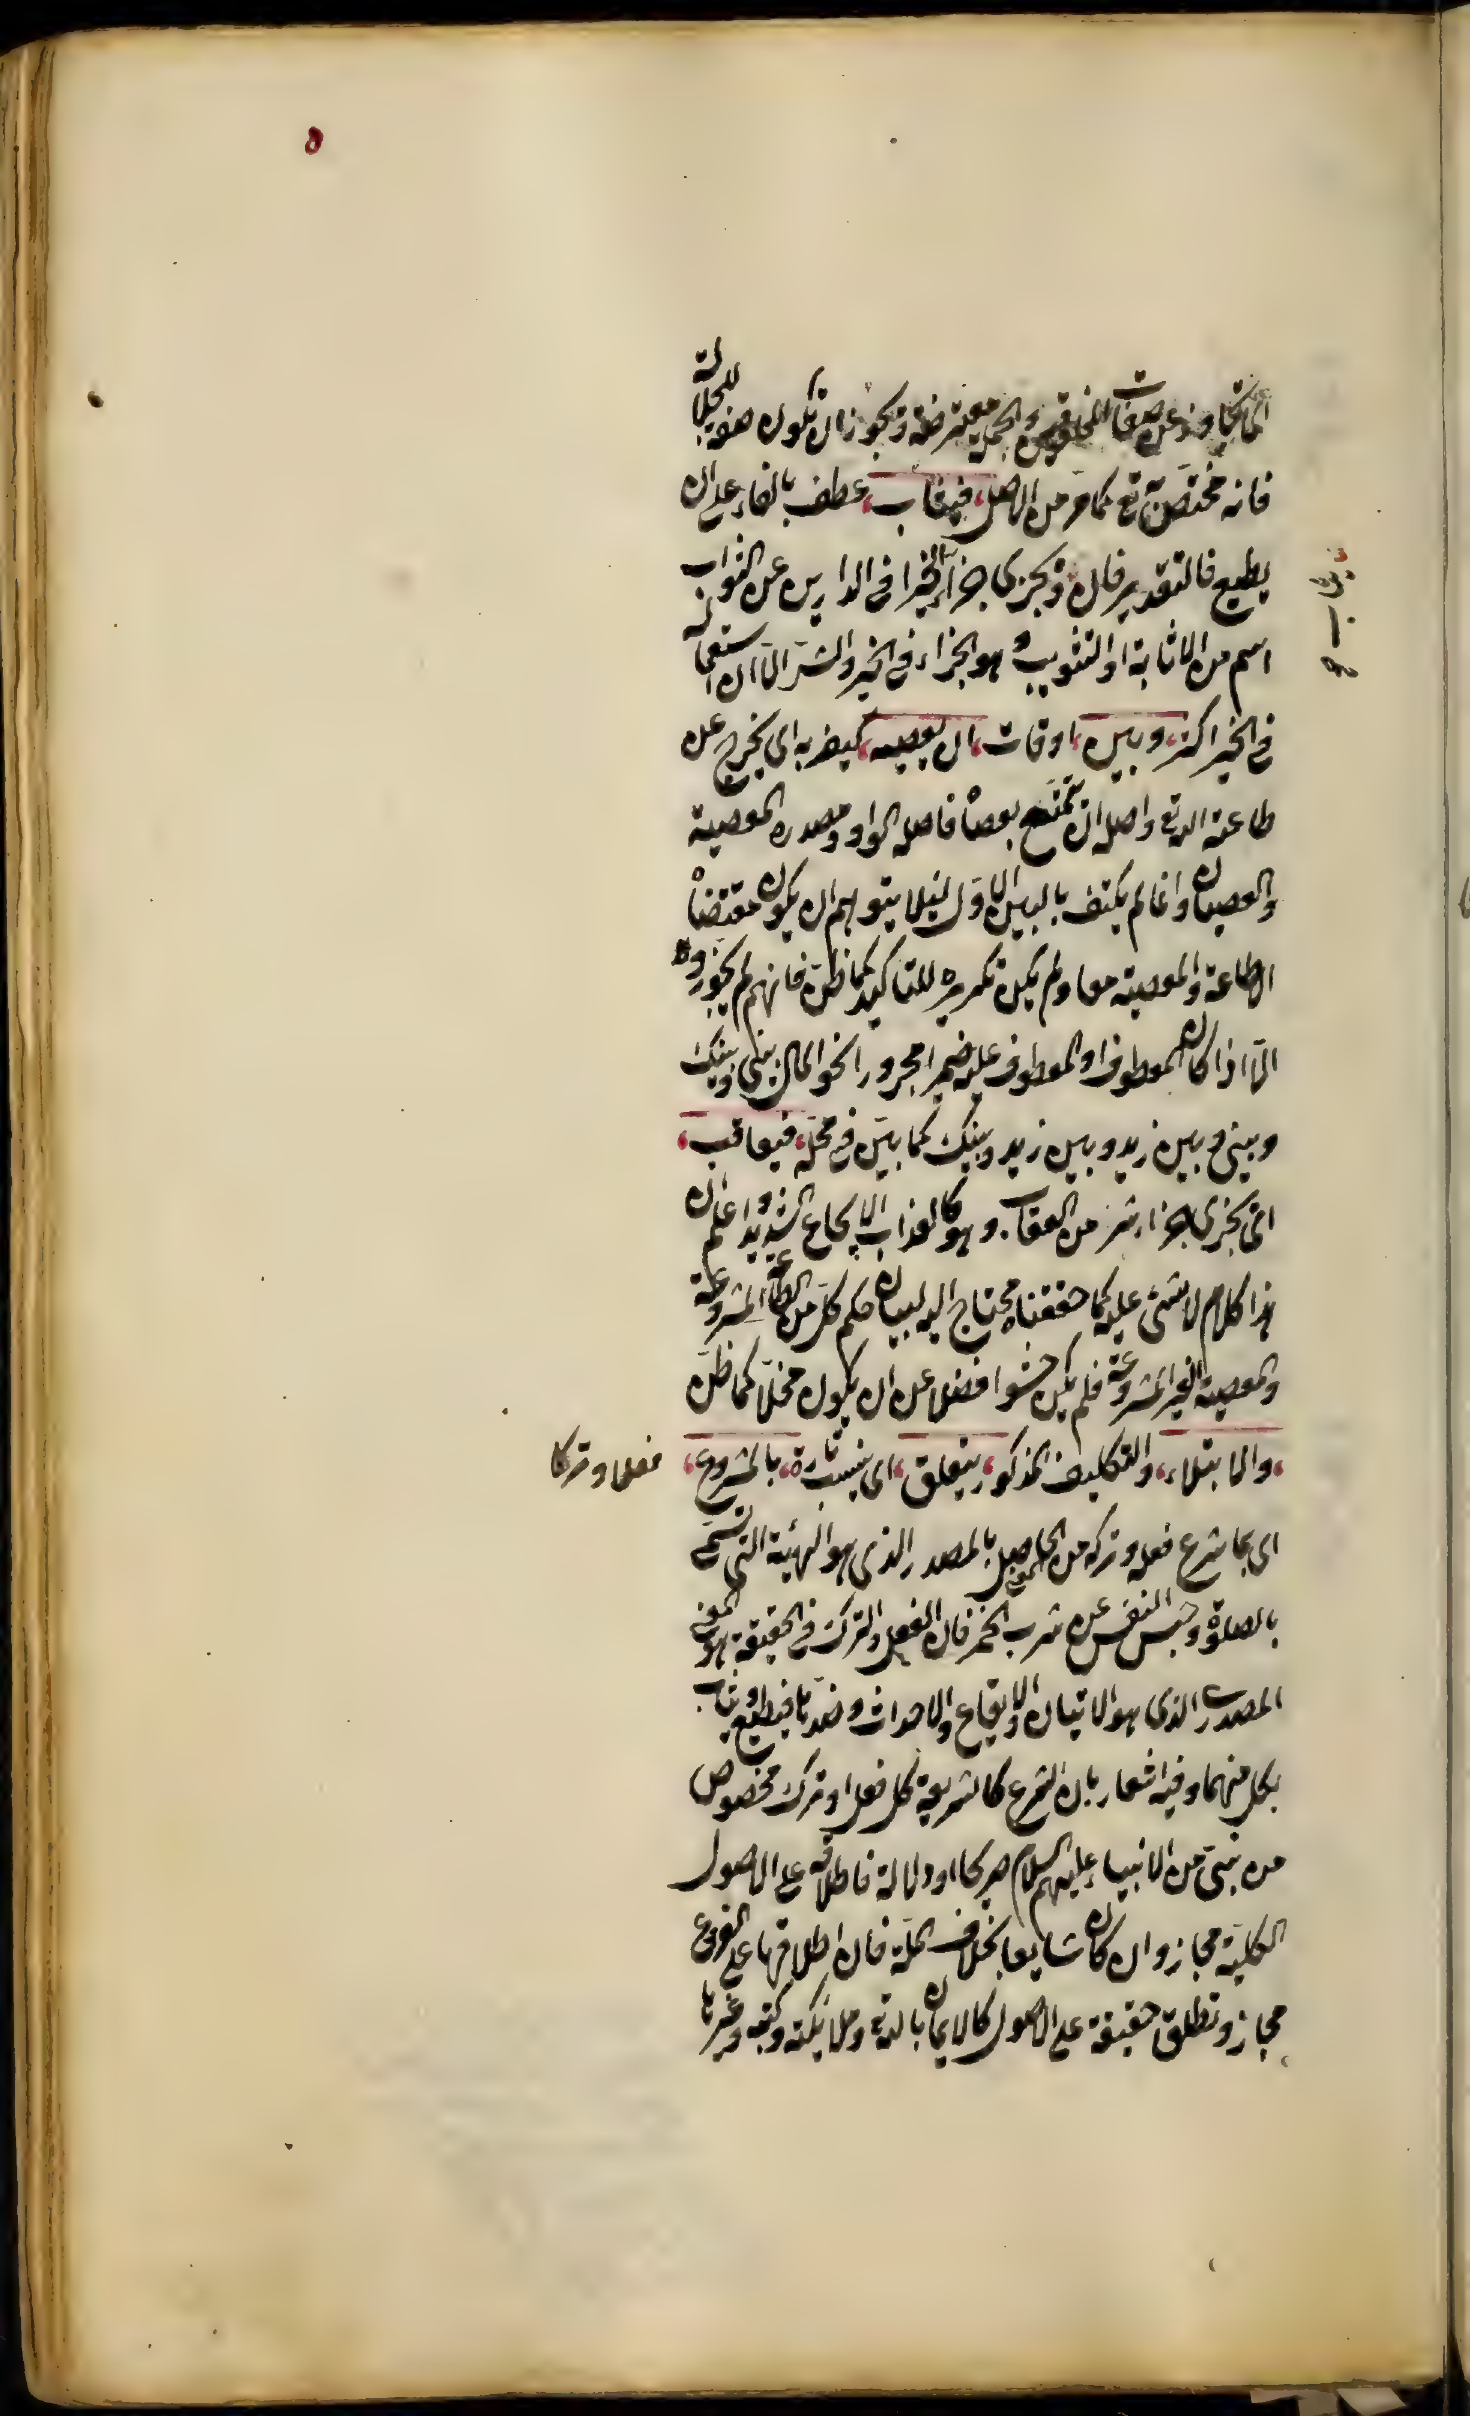 ٥
اى تجاوز عن صفات المخلوقين والجملة معترضة ويجوز ان تكون صفة للجلالة
فانه مختص به تع كما مر من الاصل فيثاب عطف بالفاء على ان
يطيع فالتقدير فان يجزى جزاء الخير فى الدارين عن الثواب
اسم من الاثابة او التثويب وهو الجزاء فى الخير والشر الا ان استعماله
فى الخير اكثر وبين اوقات ان يعصيه كيضربه اى يخرج عن
طاعة الله تع واصله ان يمتنع بعصا فاصله الواو ومصدره المعصية
والعصيان وانما لم يكتف بالبين الاول لئلا يتوهم ان يكون مقتضا
الاطاعة والمعصية معا ولم يكن تكريره للتاكيد كما ظن فانهم لم يجوزوه
الا اذا كان المعطوف او المعطوف عليه ضميرا مجرورا نحو المال بينى وبينك
وبينى وبين زيد وبين زيد وبينك كما بين فى محله فيعاقب
اى يجزى جزاء شر من العقاب وهو كالعذاب الايجاع الشديد واعلم ان
هذا كلام لا شئ عليه كما حققناه محتاج اليه لبيان حكم كل من الطاعة المشروعة
والمعصية الغير المشروعة فلم يكن حشوا فضلا عن ان يكون مخلا كما ظن
والابتلاء والتكليف المذكور يتعلق اى ينسب تارة بالمشروع
فعلا وتركا
اى بما شرع فعله وتركه من الحاصل بالمصدر الذى هو الهيئة التى تسمى
بالصلوة وحبس النفس عن شرب الخمر فان الفعل والترك فى الحقيقة هو المعنى
المصدرى الذى هو الاتيان والايقاع والاحداث وضدها فيطيع ويثاب
بكل منهما وفيه اشعار بان الشرع كالشريعة كل فعل او ترك مخصوص
من نبى من الانبياء عليهم السلام صريحا او دلالة فاطلاقه على الاصول
الكلية مجاز وان كان شايعا بخلاف الملة فان اطلاقها على الفروع
مجاز وتطلق حقيقة على الاصول كالايمان بالله وملائكته وكتبه وغيرها